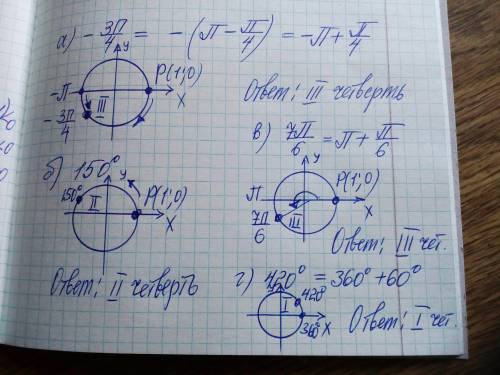 а) - 3π/4 = - (π - π/4) = - π + π/4
y
P(1;0)
-π
X
III
- 3π/4
Ответ: III четверть
б) 150°
y
150°
P(1;0)
II
X
Ответ: II четверть
в) 7π/6 = π + π/6
y
π
P(1;0)
X
7π/6
III
Ответ: III чет.
г) 420° = 360° + 60°
I
420°
360°
X
Ответ: I чет.